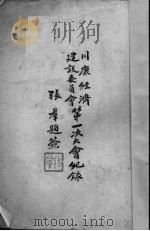 川康經濟
建設委員會第一次大會紀錄
張羣題簽